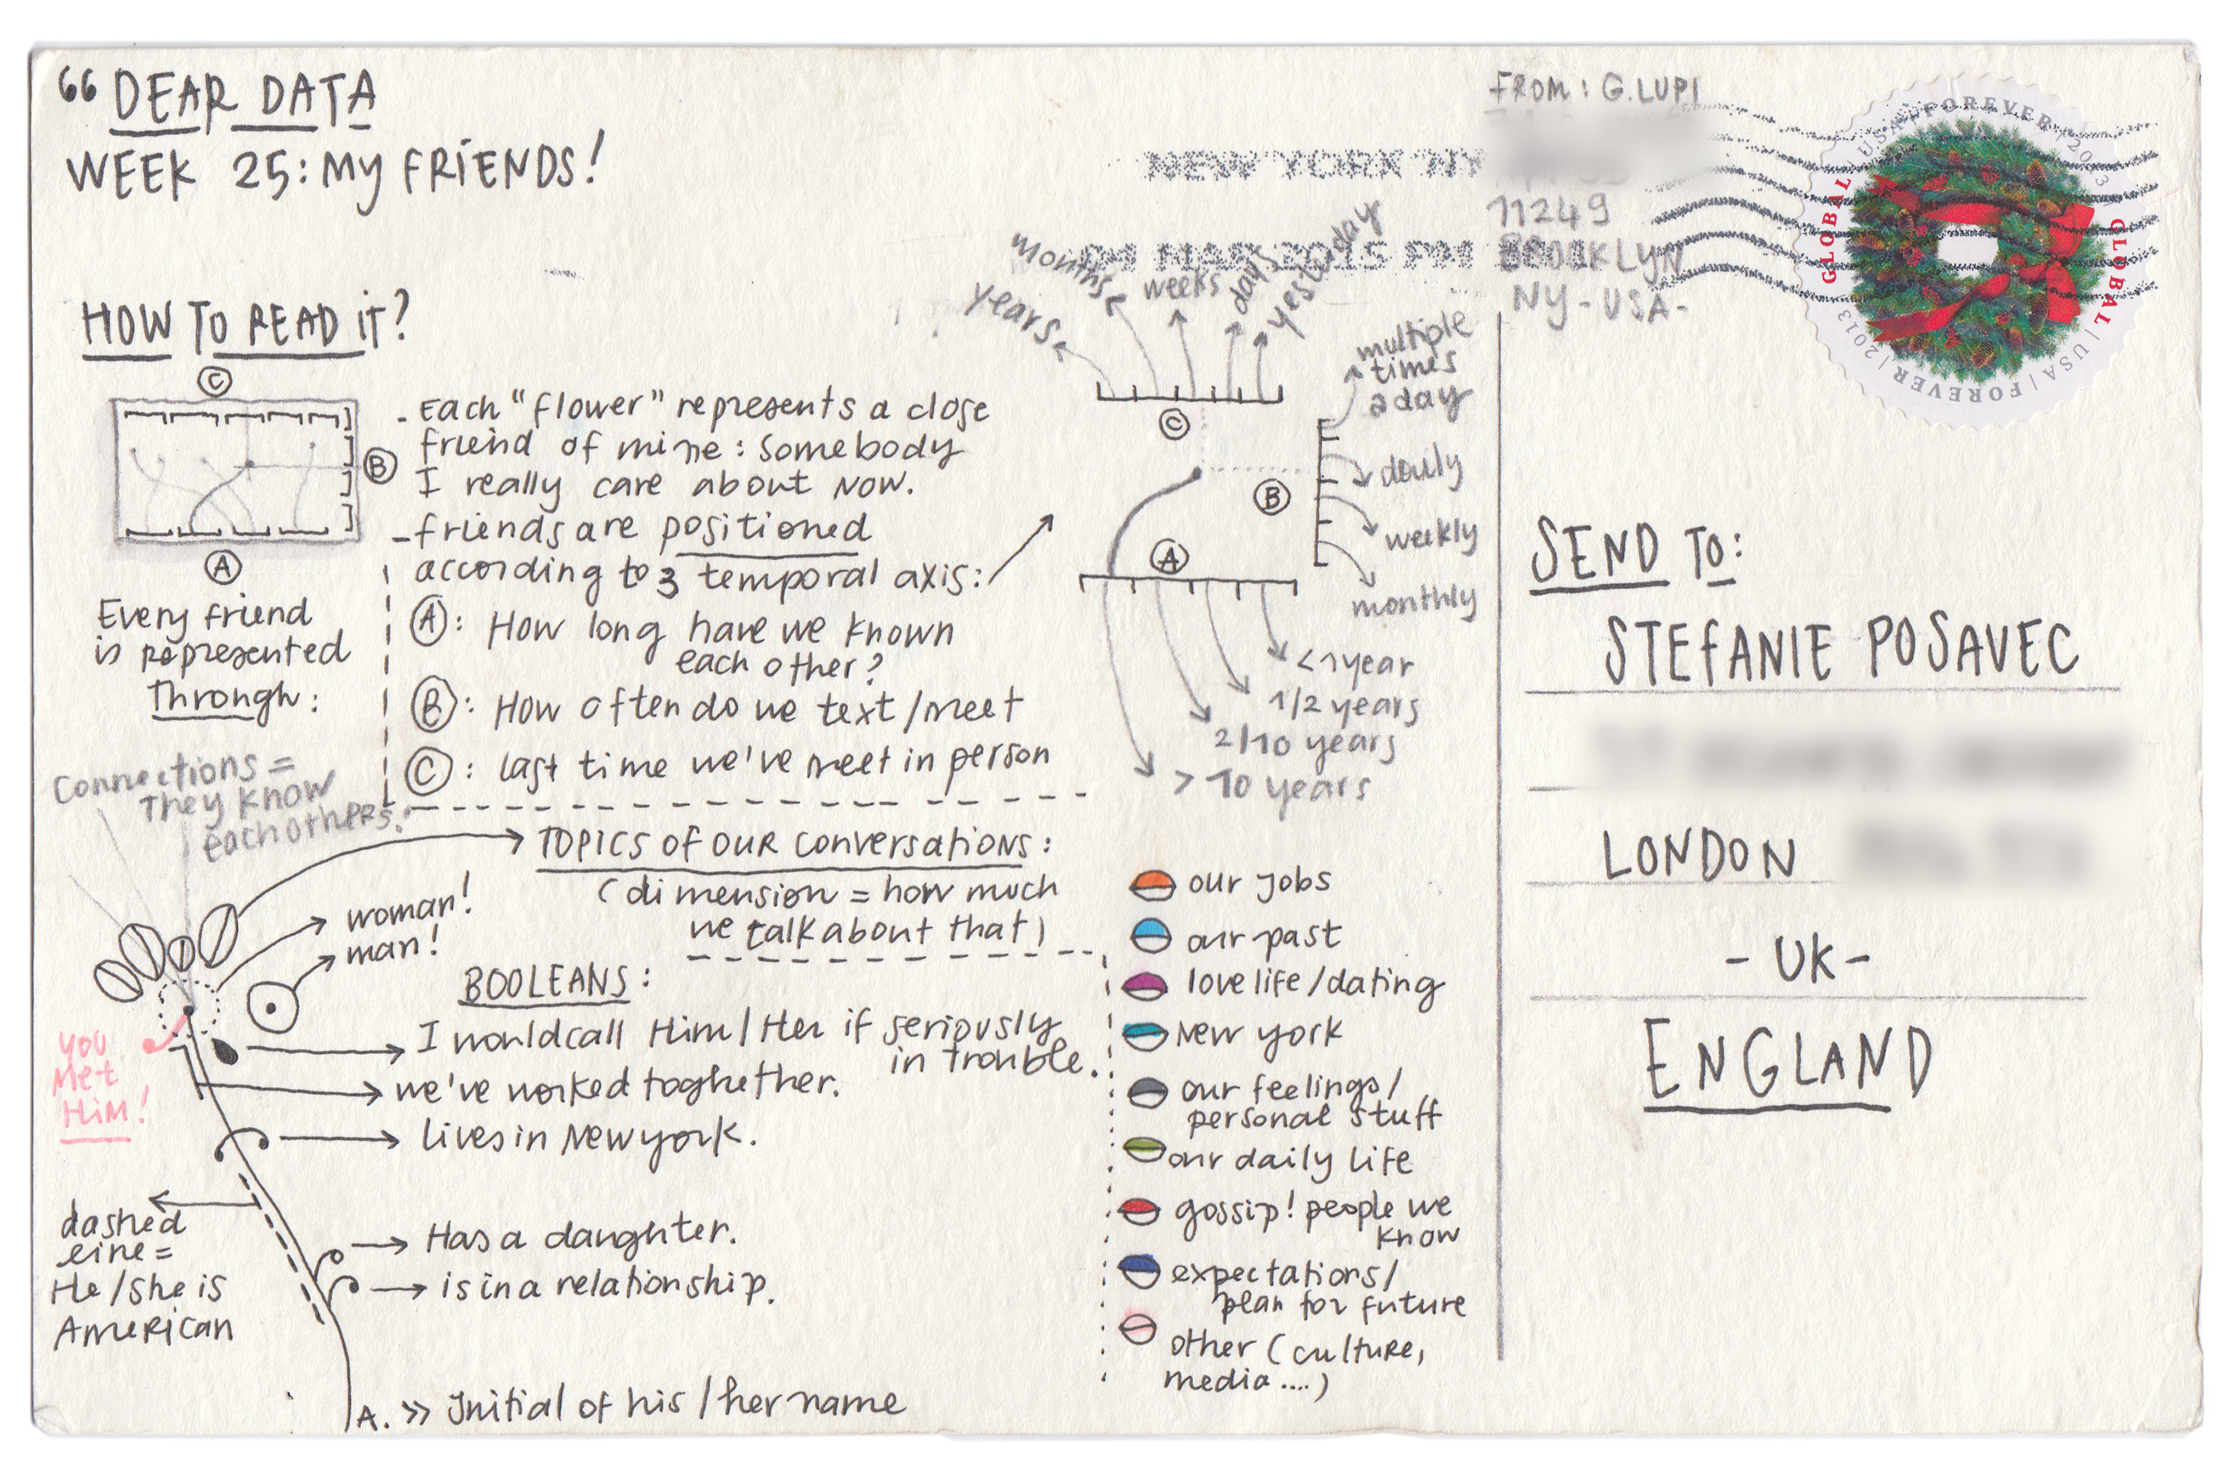 “DEAR DATA
WEEK 25: MY FRiENDS!
HOW TO READ iT?
C
B
A
Every friend
is represented
through:
- Each "flower" represents a close
friend of mine: somebody
I really care about now.
- friends are positioned
according to 3 temporal axis:
A: How long have we known
each other?
B: How often do we text/meet
C: last time we've meet in person
years
months
weeks
days
yesterday
C
multiple
times
a day
daily
weekly
monthly
B
A
<1year
1/2 years
2/10 years
> 10 years
Connections =
They know
each otheRs.
TOPICS OF OUR Conversations:
(dimension = how much
we talk about that)
woman!
man!
BOOLEANS:
I would call Him/Her if seriously
in trouble.
we've worked toghether.
lives in New york.
YOU
Met
HiM!
dashed
line =
He/she is
AmeRican
Has a daughter.
is in a relationship.
A. >> Initial of his/her name
our jobs
our past
love life/dating
New york
our feelings/
personal stuff
our daily life
gossip! people we
know
expectations/
plan for future
other (culture,
media ....)
FROM: G. LUPI
11249
BROOKLYN
NY - USA -
NEW YORK NY
MAR 2015 PM
USA | FOREVER | 2013 | GLOBAL | USA | FOREVER | 2013 | GLOBAL
SEND TO:
STEFANIE POSAVEC
LONDON
- UK -
ENGLAND